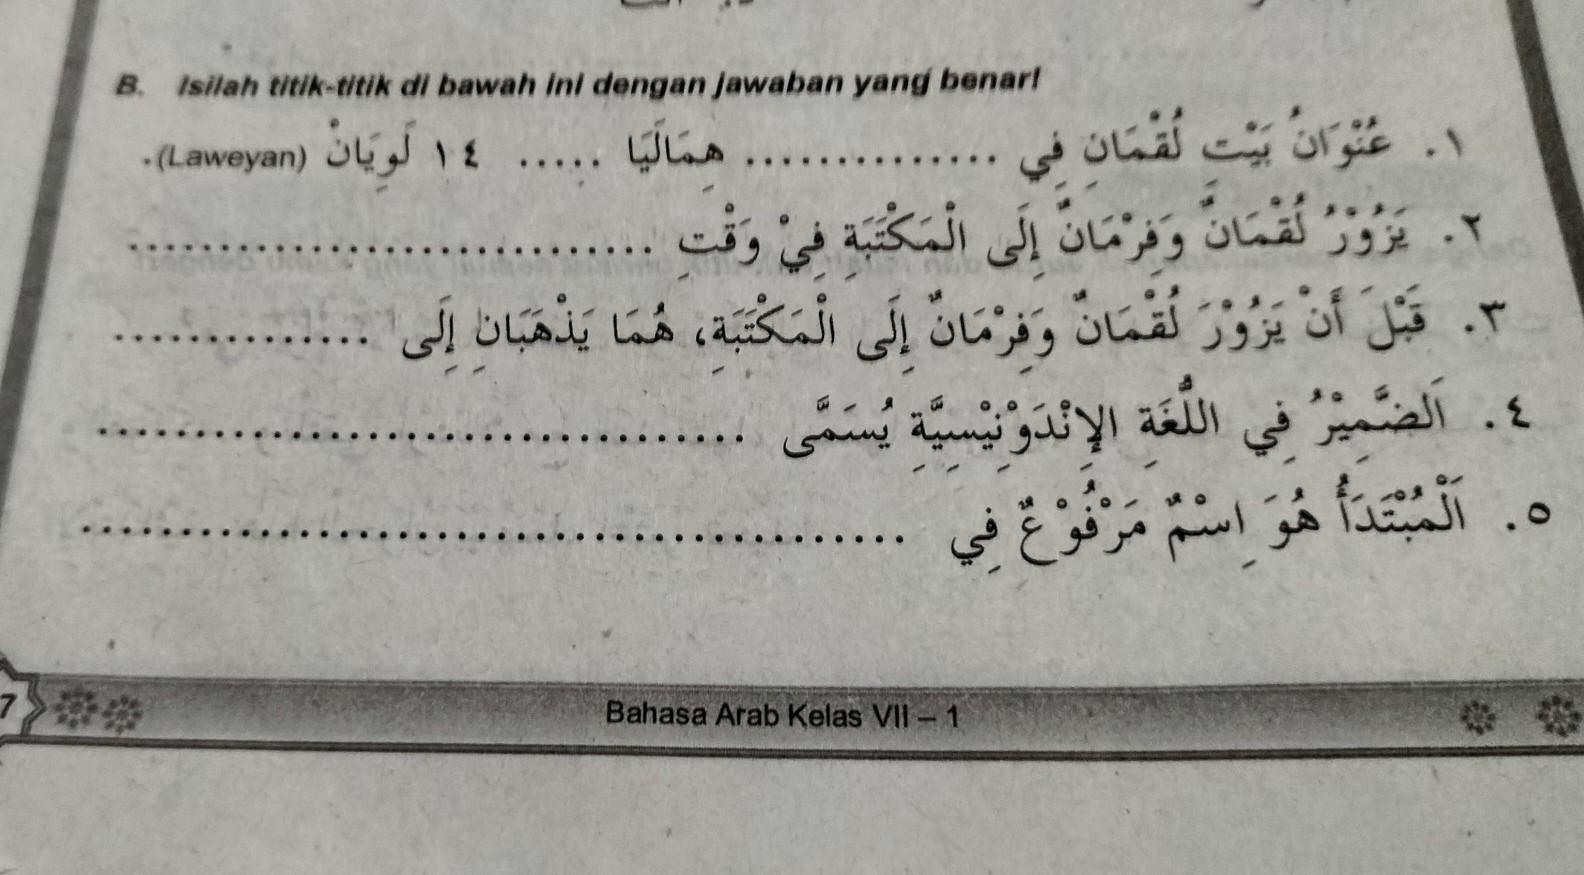 B. Isilah titik-titik di bawah ini dengan jawaban yang benar!
١. عُنْوَانُ بَيْتِ لُقْمَانِ فِي .............. هِمَالَيَا ..... ١٤ لَوِيَانْ (Laweyan).
٢. يَزُوْرُ لُقْمَانٌ وَفِرْمَانٌ إِلَى الْمَكْتَبَةِ فِيْ وَقْتِ ..............................
٣. قَبْلَ أَنْ يَزُوْرَ لُقْمَانٌ وَفِرْمَانٌ إِلَى الْمَكْتَبَةِ، هُمَا يَذْهَبَانِ إِلَى ...............
٤. اَلضَّمِيْرُ فِي اللُّغَةِ الإِنْدَوْنِيْسِيَّةِ يُسَمَّى ..................................
٥. اَلْمُبْتَدَأُ هُوَ اِسْمٌ مَرْفُوْعٌ فِي ..........................................
7
Bahasa Arab Kelas VII – 1